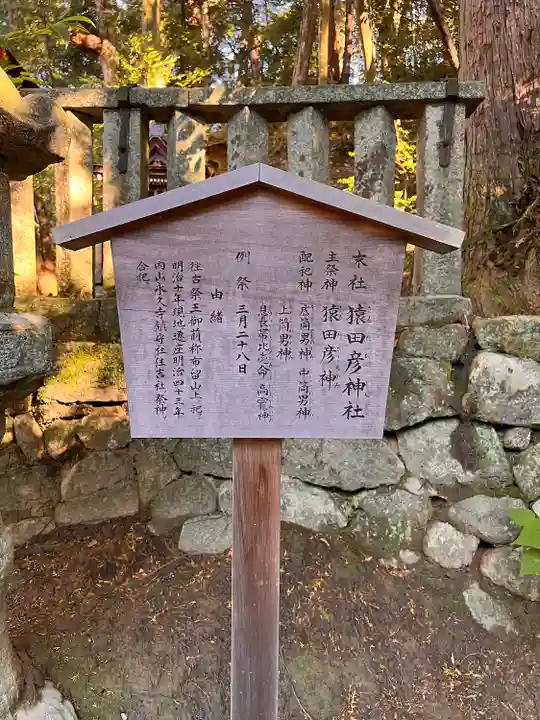 末社 猿田彦神社
主祭神 猿田彦神
配祀神 底筒男神 中筒男神
上筒男神
息長帯比売命 高靇神
例祭 三月二十八日
由緒
往古祭王御前称布留山上祀
明治十年現地遷座明治四十三年
内山永久寺鎮守社住吉社祭神
合祀